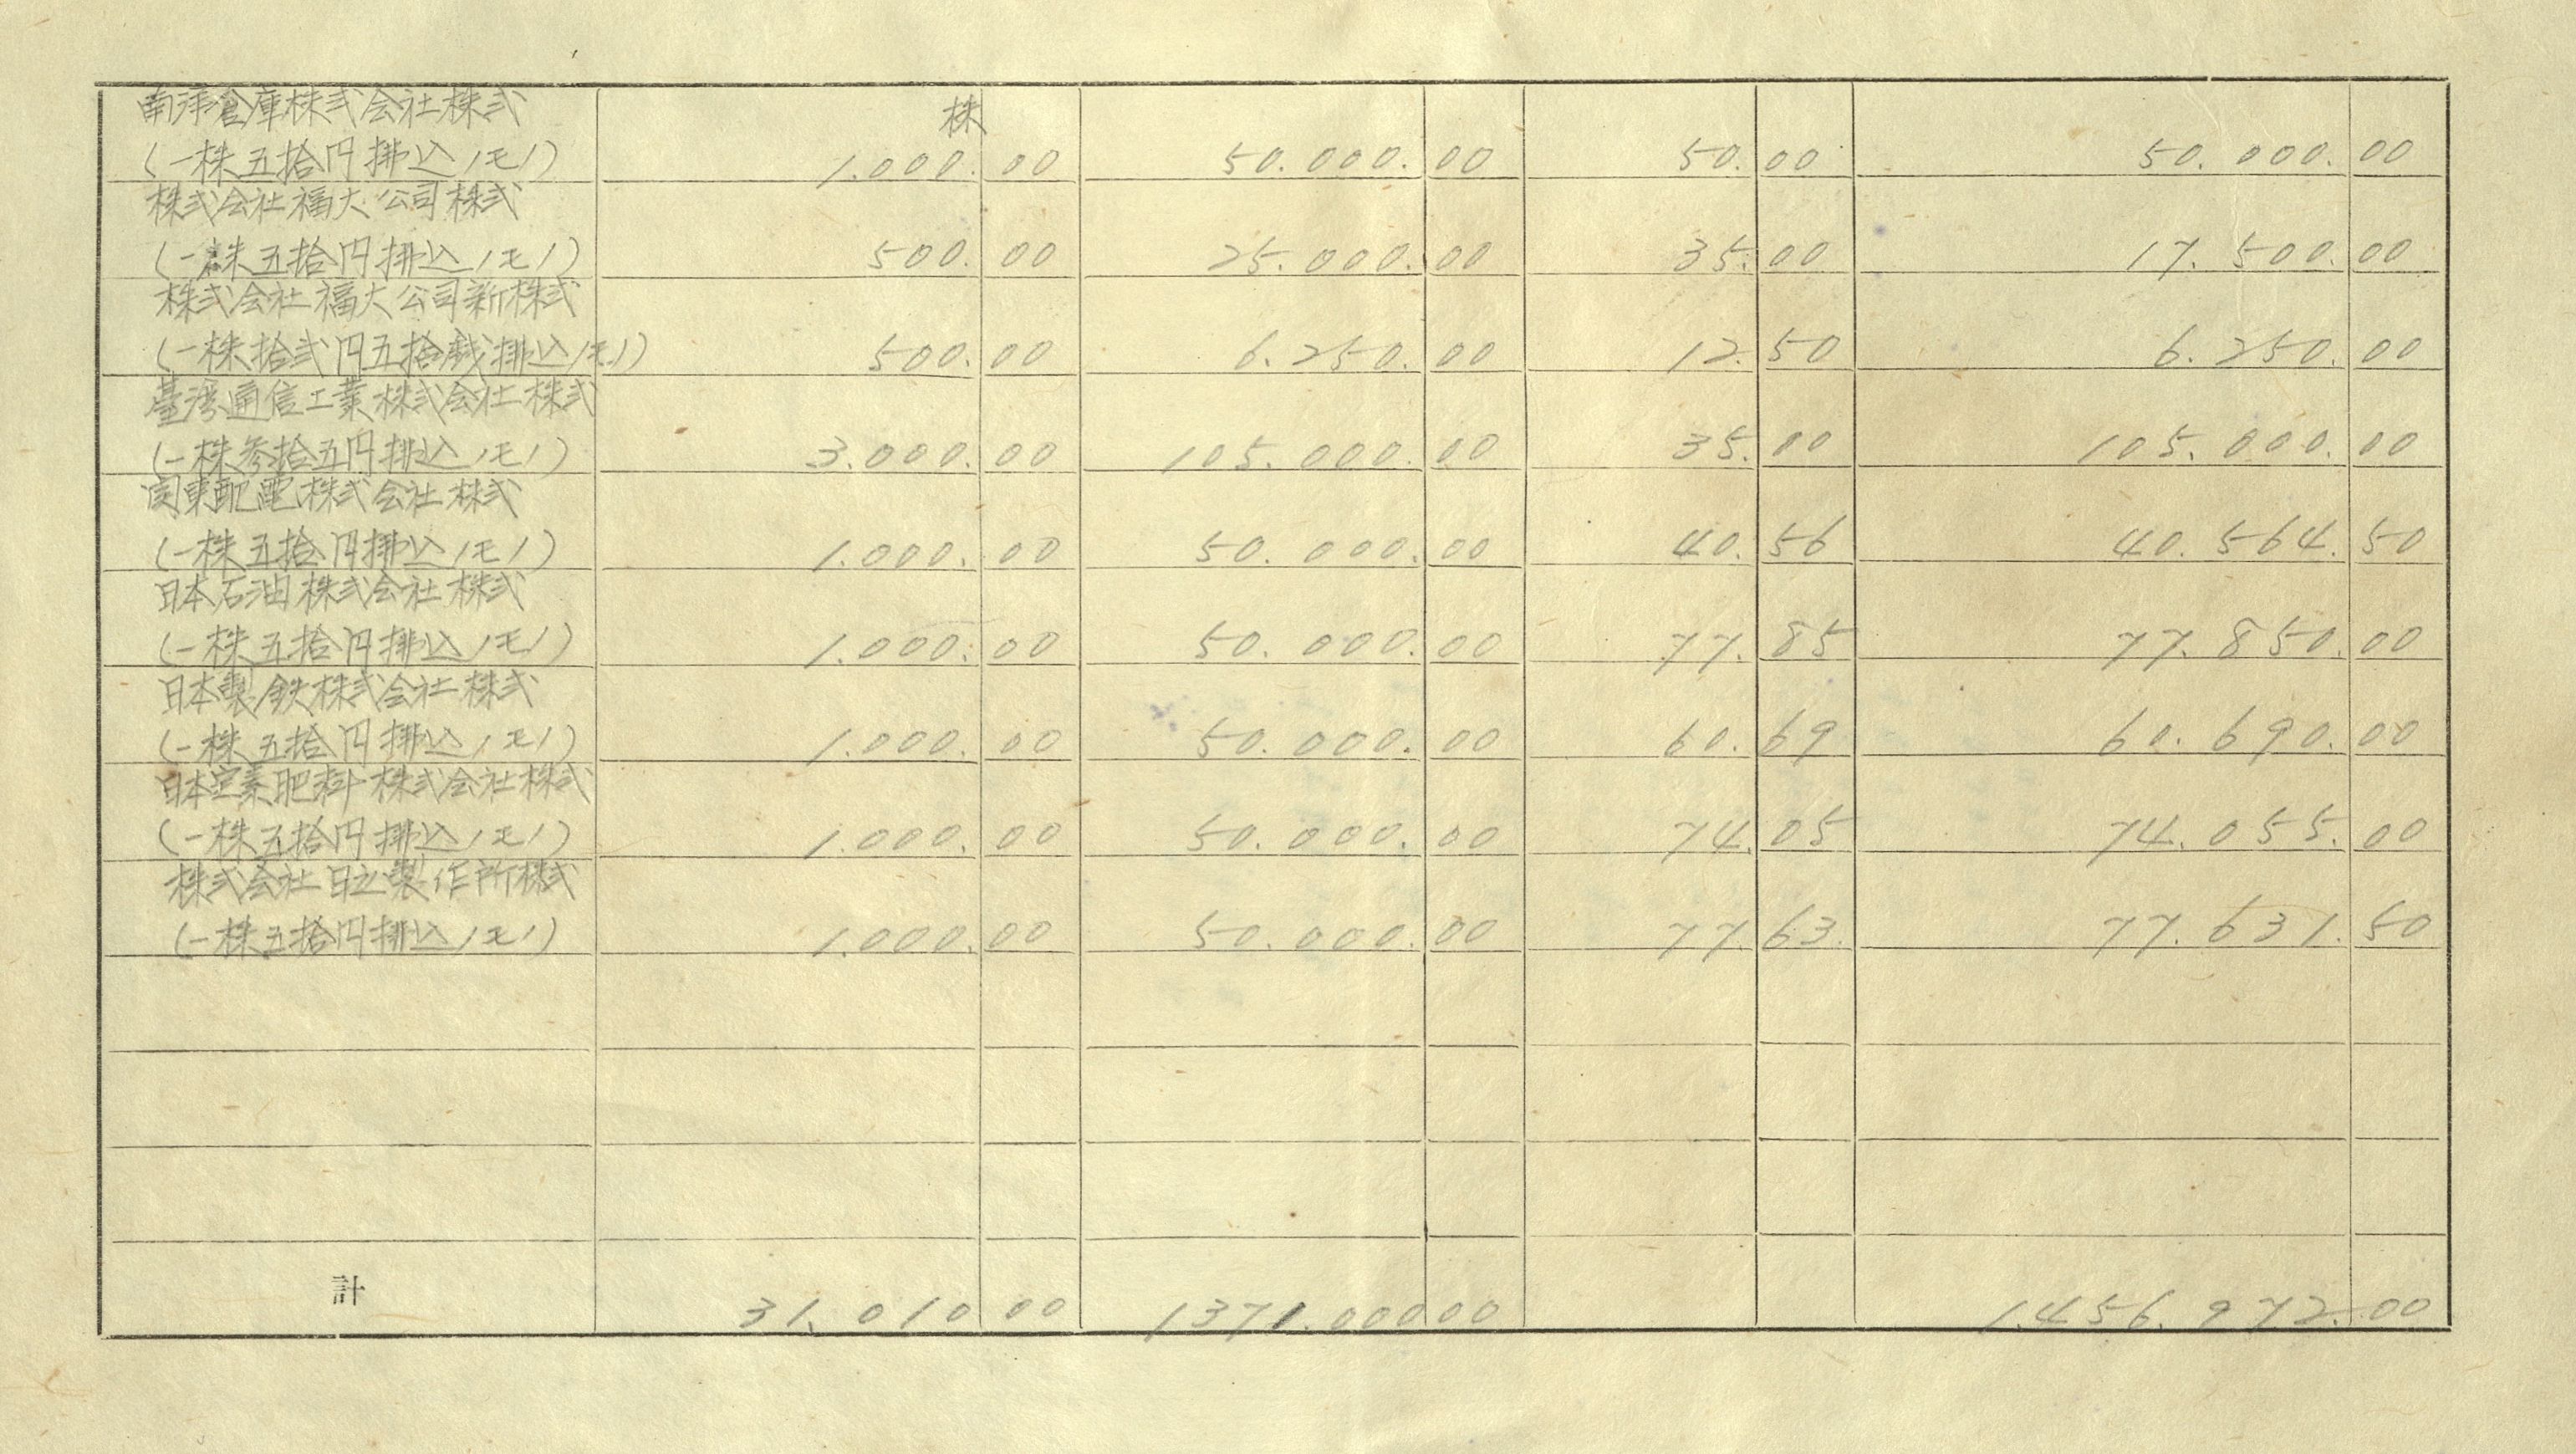 南洋倉庫株式会社株式 株
(一株五拾円排込ノモノ) 1.000.00 50.000.00 50.00 50.000.00
株式会社福大公司株式
(一株五拾円排込ノモノ) 500.00 25.000.00 35.00 17.500.00
株式会社福大公司新株式
(一株拾弐円五拾銭排込ノモノ) 500.00 6.250.00 12.50 6.250.00
臺湾通信工業株式会社株式
(一株参拾五円排込ノモノ) 3.000.00 105.000.00 35.00 105.000.00
関東配電株式会社株式
(一株五拾円排込ノモノ) 1.000.00 50.000.00 40.56 40.564.50
日本石油株式会社株式
(一株五拾円排込ノモノ) 1.000.00 50.000.00 77.85 77.850.00
日本製鉄株式会社株式
(一株五拾円排込ノモノ) 1.000.00 50.000.00 60.69 60.690.00
日本窒素肥料株式会社株式
(一株五拾円排込ノモノ) 1.000.00 50.000.00 74.05 74.055.00
株式会社日立製作所株式
(一株五拾円排込ノモノ) 1.000.00 50.000.00 77.63 77.631.50
計 31.010 00 1371.000 00 1.456.972.00